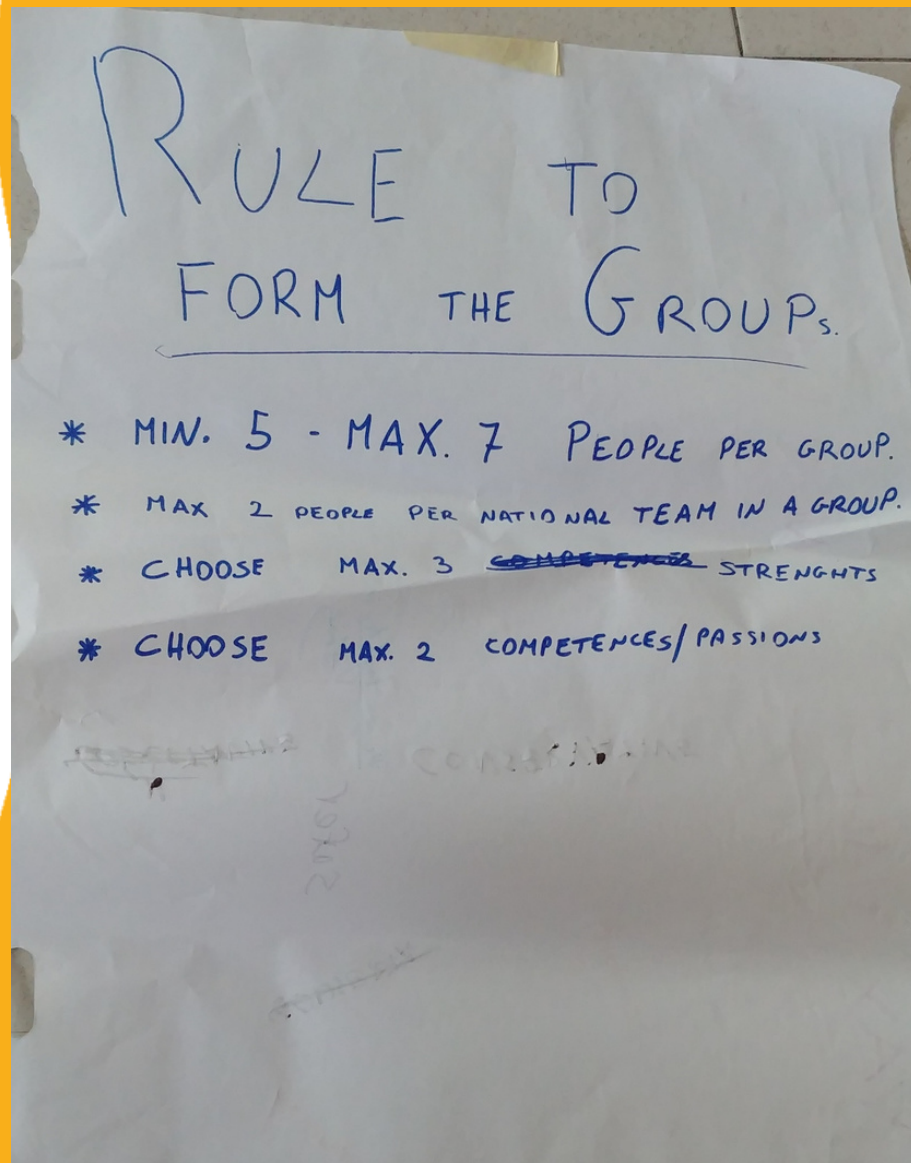 RULE TO
FORM THE GROUPs.
* MIN. 5 - MAX. 7 PEOPLE PER GROUP.
* MAX 2 PEOPLE PER NATIONAL TEAM IN A GROUP.
* CHOOSE MAX. 3 COMPETENCES STRENGHTS
* CHOOSE MAX. 2 COMPETENCES/PASSIONS